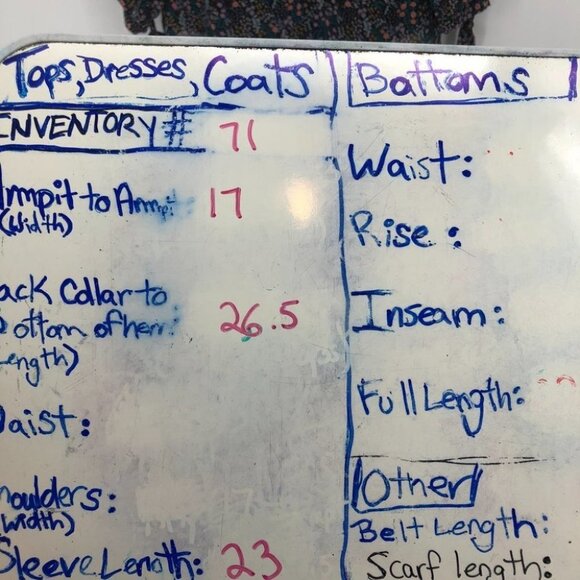 Tops, Dresses, Coats
INVENTORY # 71
Armpit to Armpit: 17
(Width)
Back Collar to
Bottom of hem: 26.5
(Length)
Waist:
Shoulders:
(width)
Sleeve Length: 23
Bottoms
Waist:
Rise:
Inseam:
Full Length:
Other
Belt Length:
Scarf length: